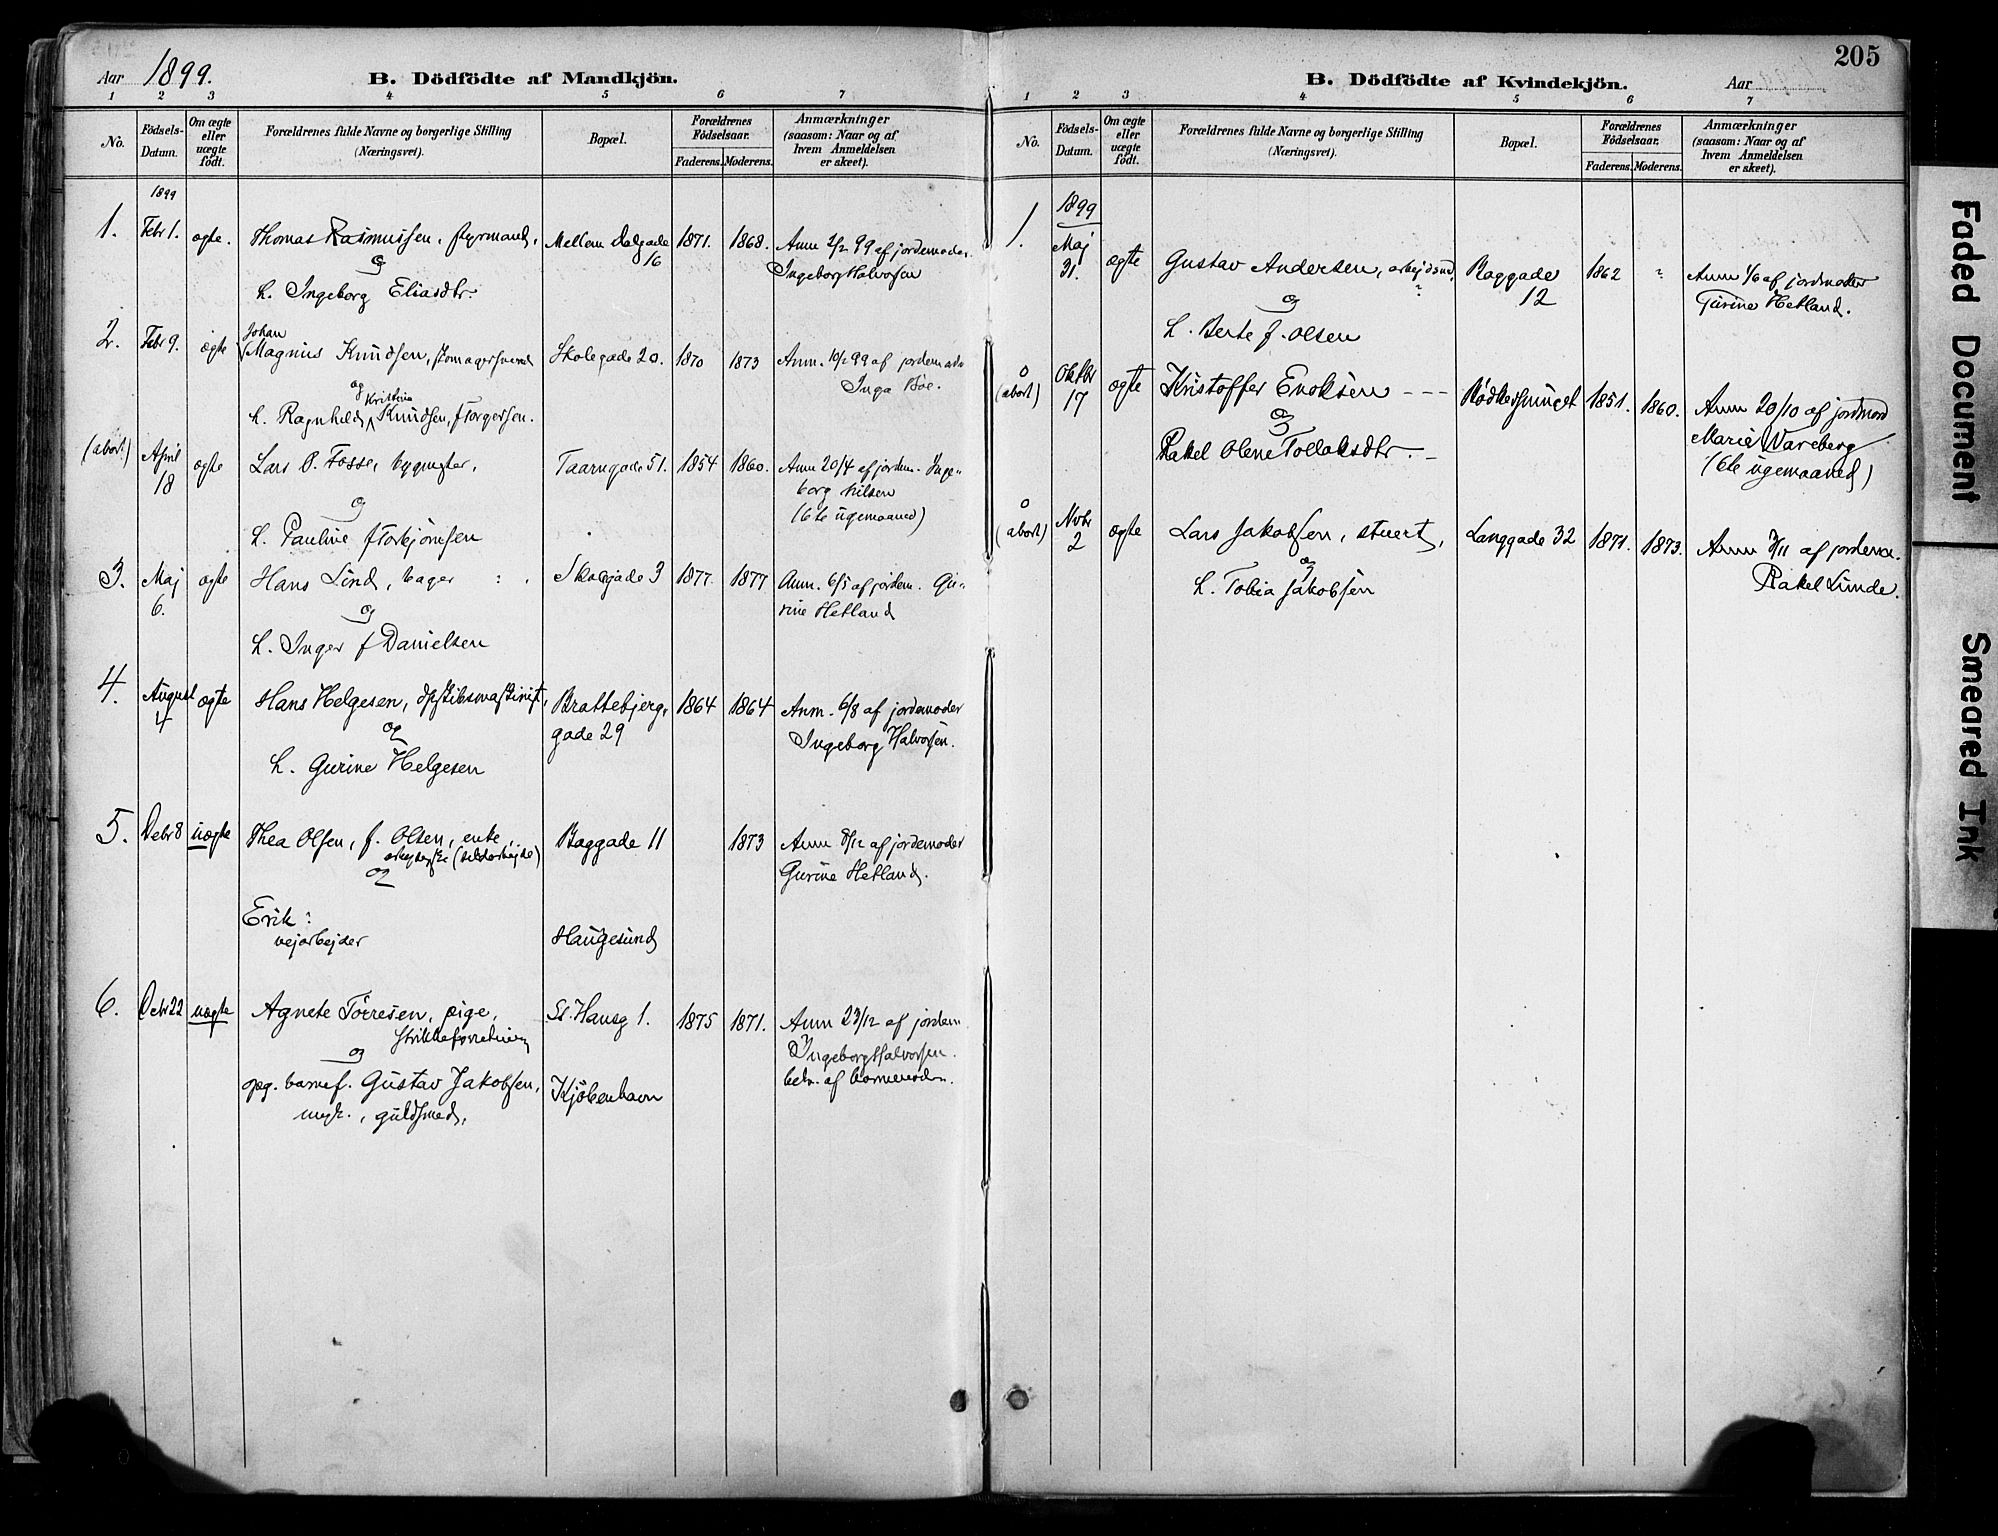 Aar 1899.
B. Dödfödte af Mandkjön.
1 2 3 4 5 6 7
No.
Födsels-Datum.
Om ægte eller uægte födt.
Forældrenes fulde Navne og borgerlige Stilling (Næringsvei).
Bopæl.
Forældrenes Födselsaar.
Faderens. Moderens.
Anmærkninger (saasom: Naar og af hvem Anmeldelsen er skeet).
1899
1. Febr 1. ægte. Thomas Rasmussen, styrmand, Mellem Dalgade 16 1871. 1868. Anm 2/2 99 af jordemoder
og
Ingeborg Halvorsen
h. Ingeborg Eliasdtr.
2. Febr 9. ægte Johan Magnus Knudsen, skomagersvend Skolegade 20. 1870 1873 Anm. 10/2 99 af jordemoder
og
Inga Böe.
h. Ragnhild Kristine Knudsen, f Torgersen.
(abort) April 18 ægte Lars O. Fosse, bygmster, Taarngade 51. 1854 1860. Anm 20/4 af jordem. Inge-
og
borg Nilsen
(6te ugemaaned)
h. Pauline f Torkjörnsen
3. Maj 6. ægte Hans Lind, bager Skolegade 3 1877. 1877 Anm. 6/5 af jordem. Gu-
og
rine Hetland
h. Inger f Danielsen
4. August 4 ægte Hans Helgesen, Brattebjerg- 1864 1864 Anm. 6/8 af jordemoder
og
gade 29
Ingeborg Halvorsen.
h. Gurine Helgesen
5. Debr 8 uægte Thea Olsen, f. Olsen, enke, Baggade 11 1873 Anm 8/12 af jordemoder
(sildarbejde)
og
Gurine Hetland.
Erik ?
vejarbejder Haugesund
6. Debr 22 uægte Agnete Törresen, pige, St. Hansg 1. 1875 1871. Anm 23/12 af jordem.
strikkeforretning
og
Ingeborg Halvorsen.
opg. barnef. Gustav Jakobsen, Kjöbenhavn
ungk., guldsmed,
205
B. Dödfödte af Kvindekjön.
Aar
1 2 3 4 5 6 7
No.
Födsels-Datum.
Om ægte eller uægte födt.
Forældrenes fulde Navne og borgerlige Stilling (Næringsvei).
Bopæl.
Forældrenes Födselsaar.
Faderens. Moderens.
Anmærkninger (saasom: Naar og af hvem Anmeldelsen er skeet).
1899
1. Maj 31. ægte Gustav Andersen, arbejdsmd, Baggade 12 1862 " Anm 1/6 af jordmoder
og
Hetland.
h. Berte f. Olsen
0 (abort) Oktbr 17 ægte Kristoffer Enoksen - - - 1851. 1860. Anm 20/10 af jordmod
og
Marie Wareberg
Rakel Olene Tollaksdtr. -
(6te ugemaaned)
0 (abort) Novbr 2 ægte Lars Jakobsen, stuert, Langgade 32 1871. 1873. Anm 3/11 af jordemo.
og
Rakel Lunde.
h. Tobia Jakobsen
Faded Document
Smeared Ink